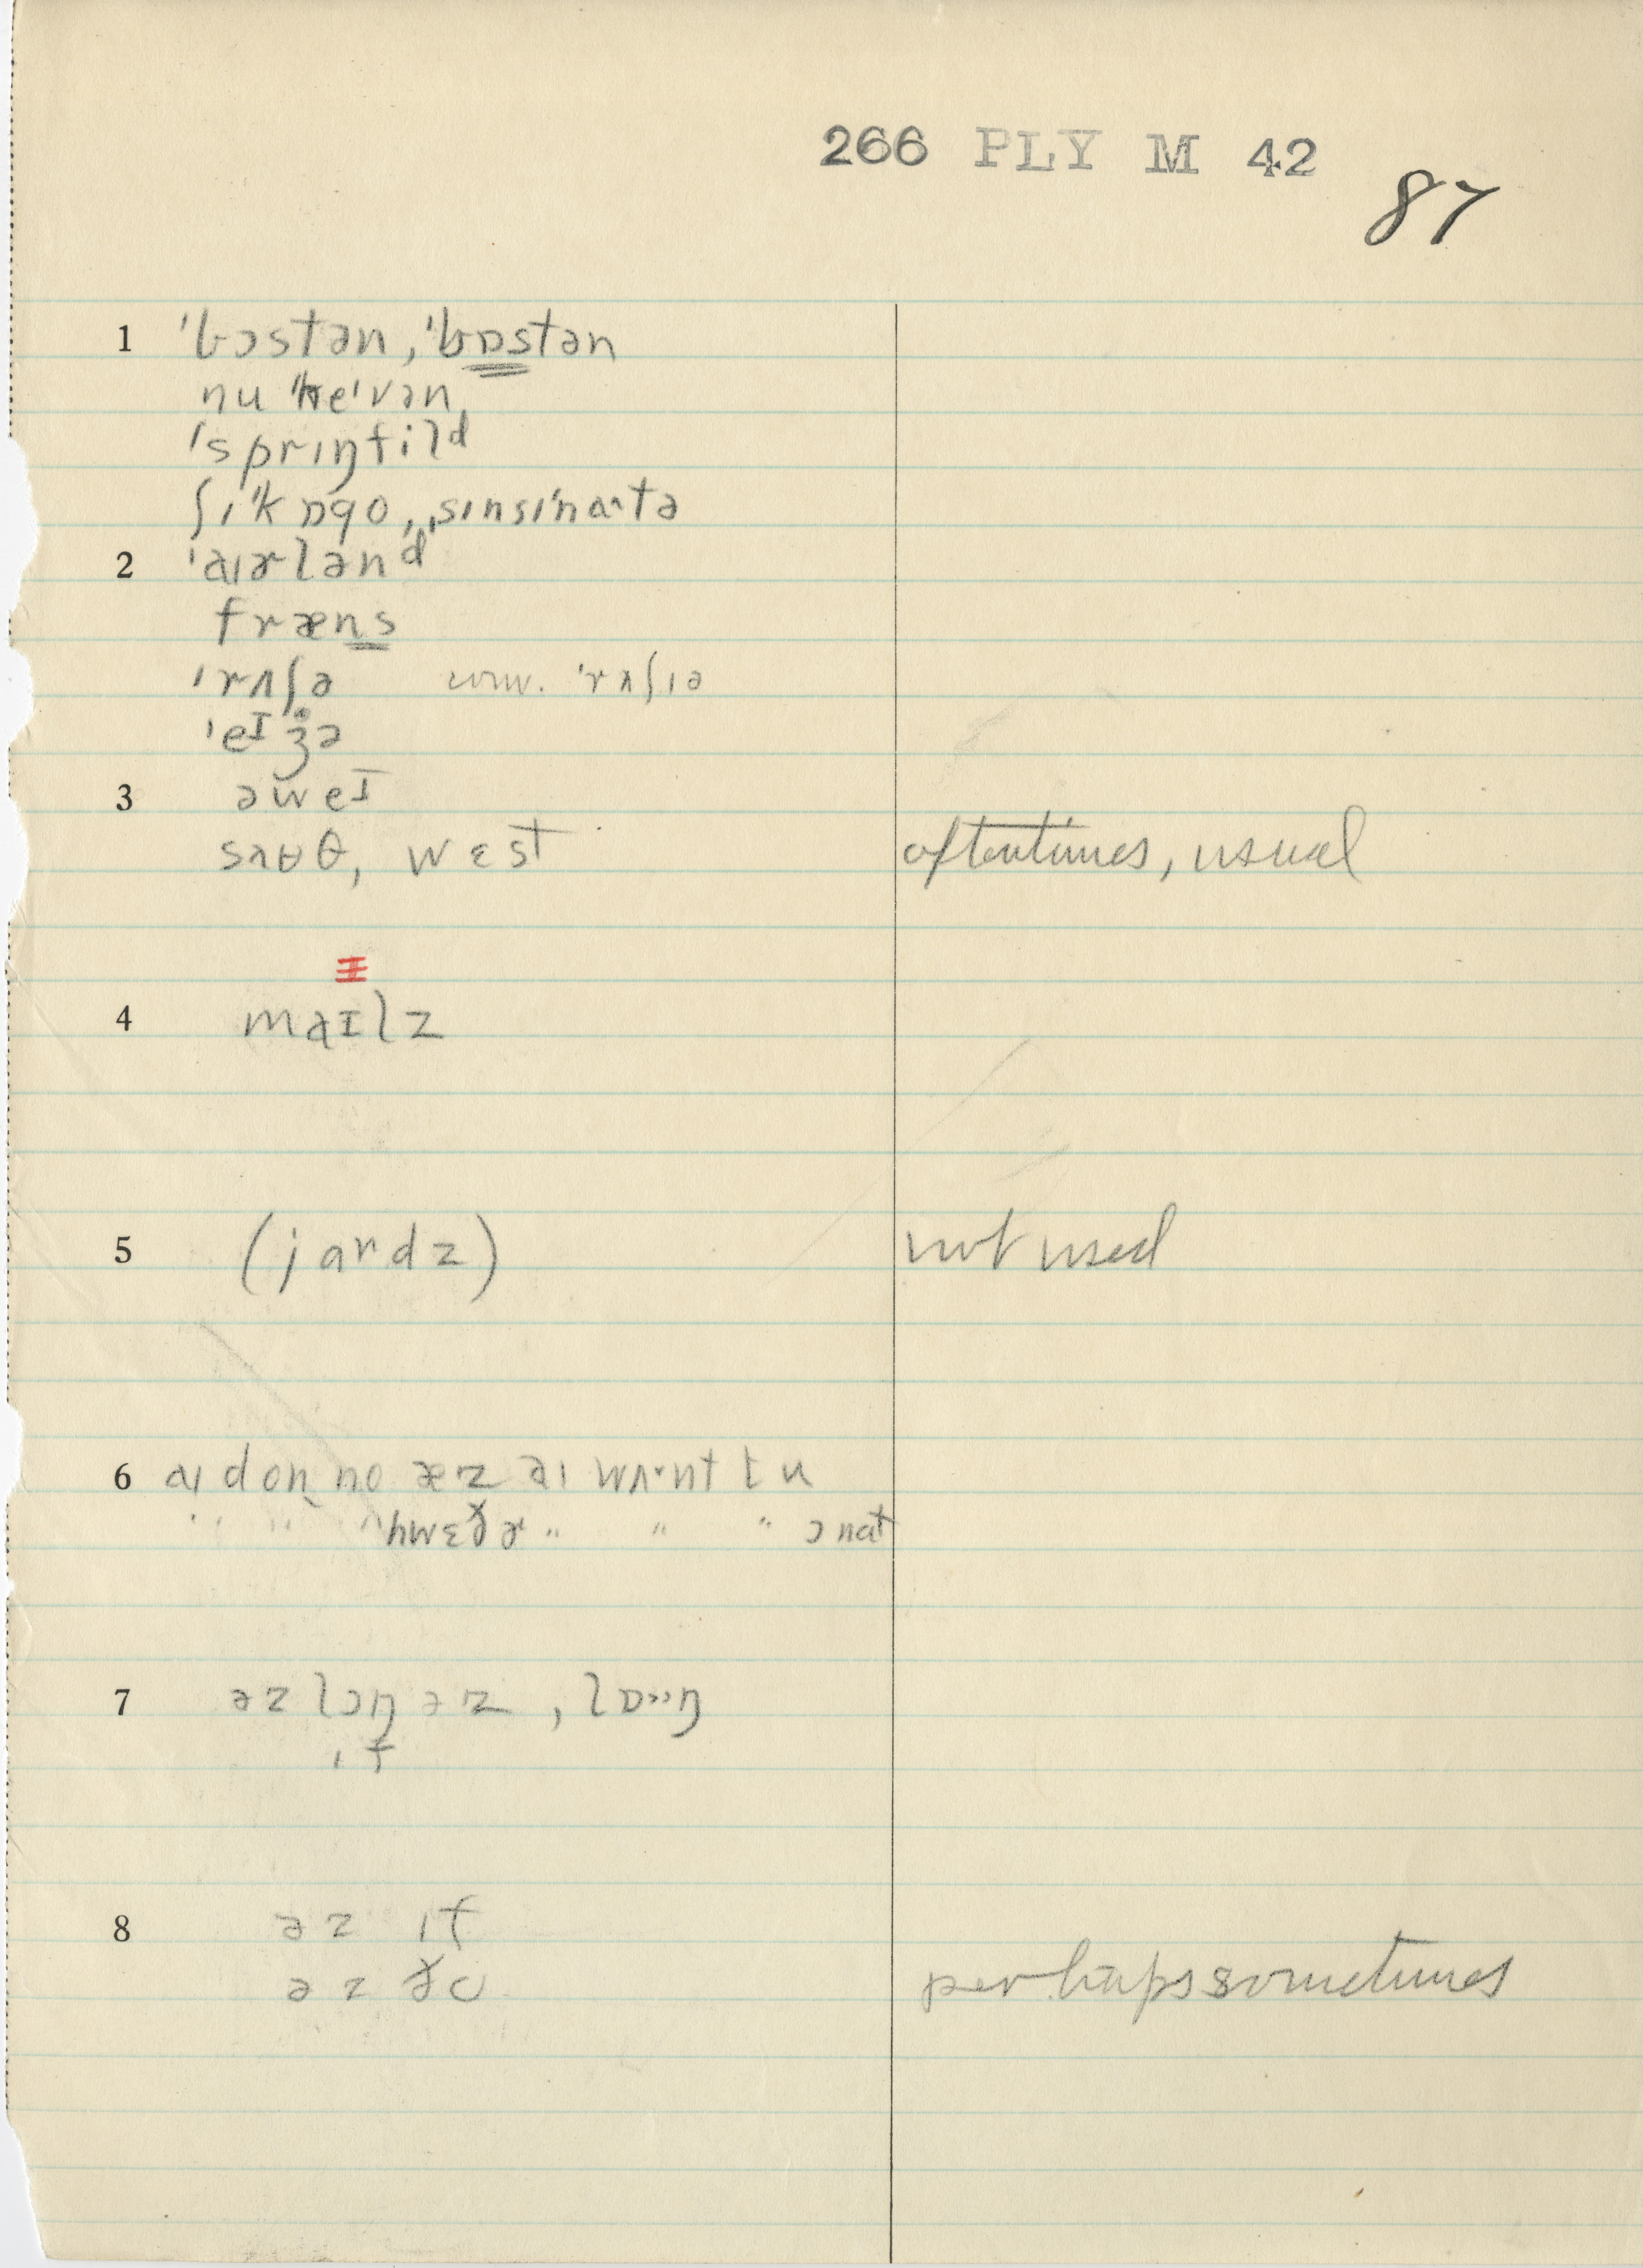 266 PLY M 42
87
1 ˈbɔstən, ˈbɒstən
nu ˈheˈvən
ˈsprɪŋfilᵈ
ʃɪˈkɒgo, ˌsɪnsɪˈnaˑtə
2 ˈaɪɚlənᵈ
fræns
ˈrʌʃə conv. ˈrʌʃɪə
ˈeɪʒə
3 əweɪ
sʌʉθ, wɛst oftentimes, usual
4 maɪlz
5 (jaʳdz) not used
6 aɪ don no æz aɪ wʌˑnt tu
" " " hwɛðɚ " " " ɔ nat
7 əz lɔŋ əz , lɒˑˑŋ
ɪf
8 əz ɪf
əz ðo perhaps sometimes